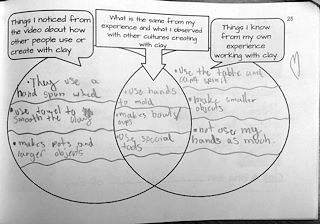 Things I noticed from
the video about how
other people use or
create with clay
What is the same from my
experience and what I observed
with other cultures creating
with clay
Things I know
from my own
experience
working with clay.
25
• They use a
hand spun wheel
• use towel to
smooth the clay
• makes pots and
larger objects
• use hands
to mold
• makes bowls/
• use special
tools
• use the table and
cant spin it
• make smaller
objects
• not use my
hands as much.